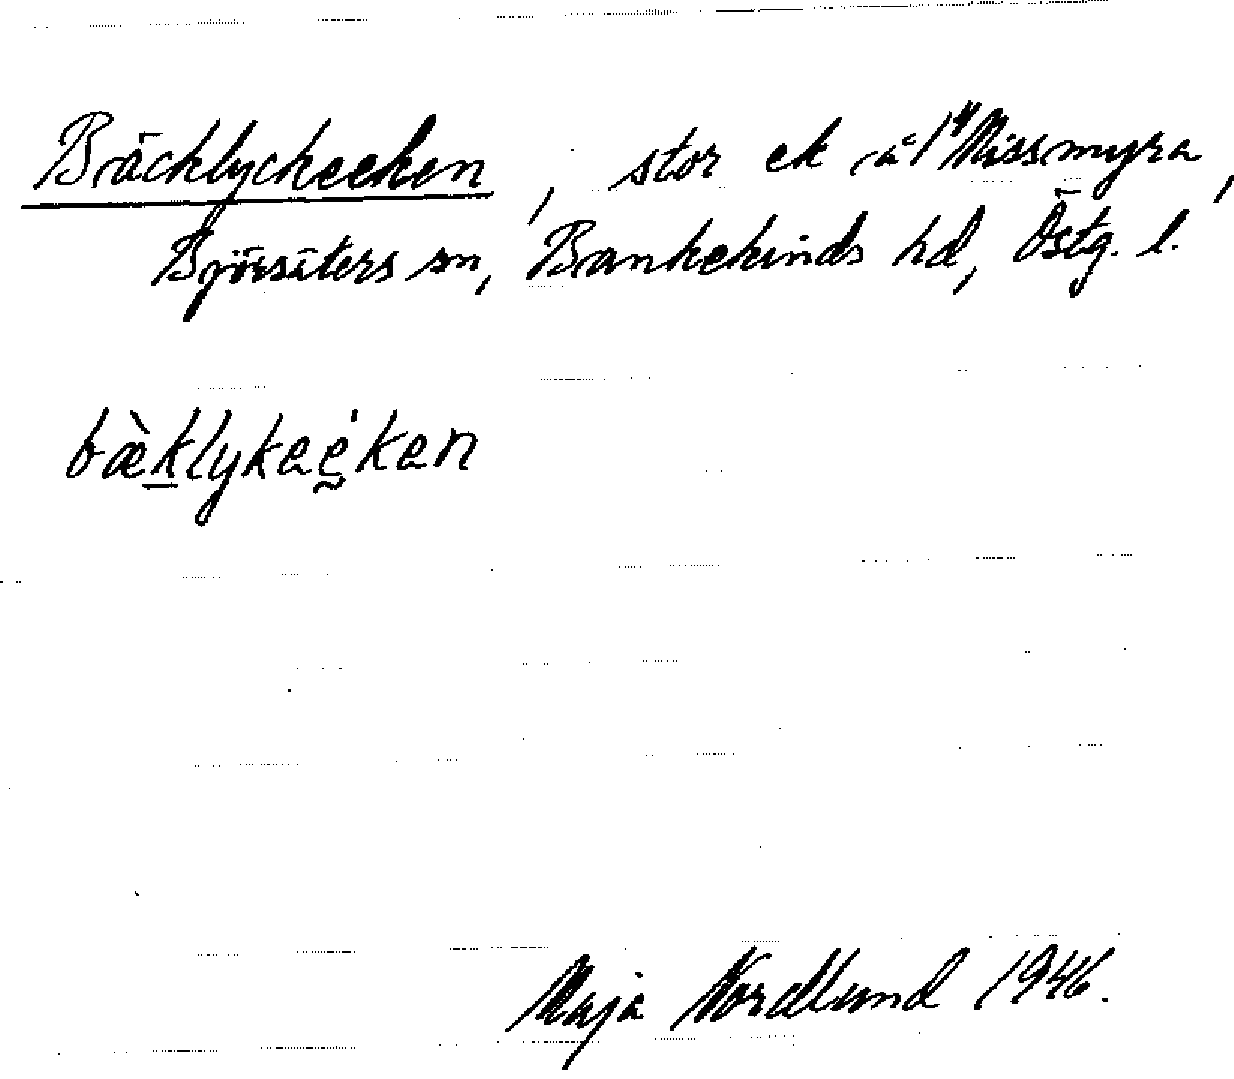 Bäcklyckeeken, stor ek å 1⁄4 Missmyra,
Björsäters sn, Bankekinds hd, Östg. l.
bæ̀klykaékan
Maja Nordlund 1946.